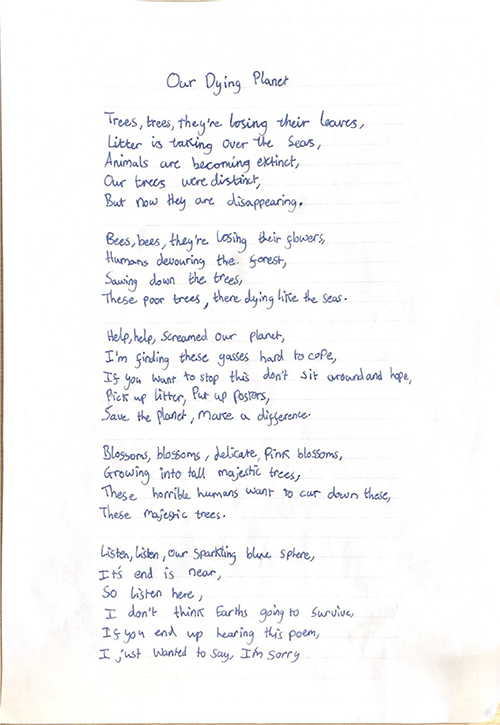 Our Dying Planet
Trees, trees, they're losing their leaves,
Litter is taking over the seas,
Animals are becoming extinct,
Our trees were distinct,
But now they are disappearing.
Bees, bees, they're losing their flowers,
Humans devouring the forest,
Sawing down the trees,
These poor trees, there dying like the seas.
Help, help, screamed our planet,
I'm finding these gasses hard to cope,
If you want to stop this don't sit around and hope,
Pick up litter, Put up posters,
Save the planet, make a difference.
Blossoms, blossoms, delicate, Pink blossoms,
Growing into tall majestic trees,
These horrible humans want to cut down these,
These majestic trees.
Listen, listen, our sparkling blue sphere,
It's end is near,
So listen here,
I don't think Earths going to survive,
If you end up hearing this poem,
I just wanted to say, I'm sorry